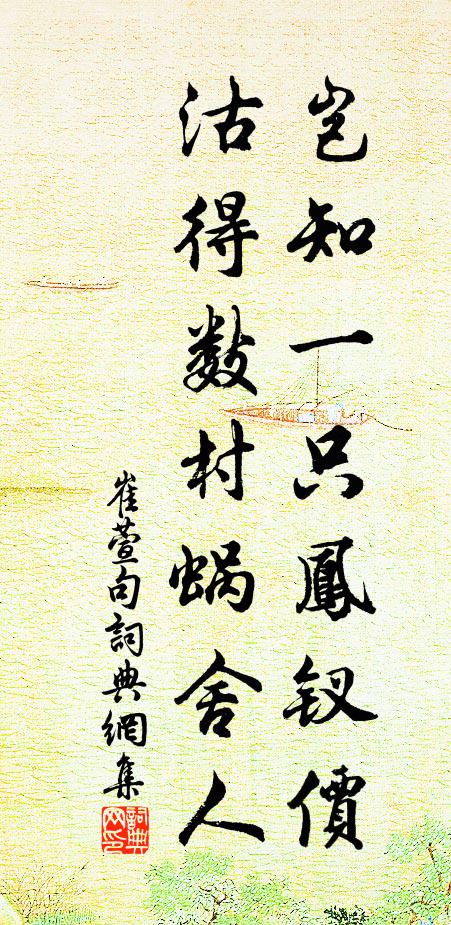 岂知一只鳳釵價
沽得数村蜗舍人
崔萱句詞典網集
詞典網印